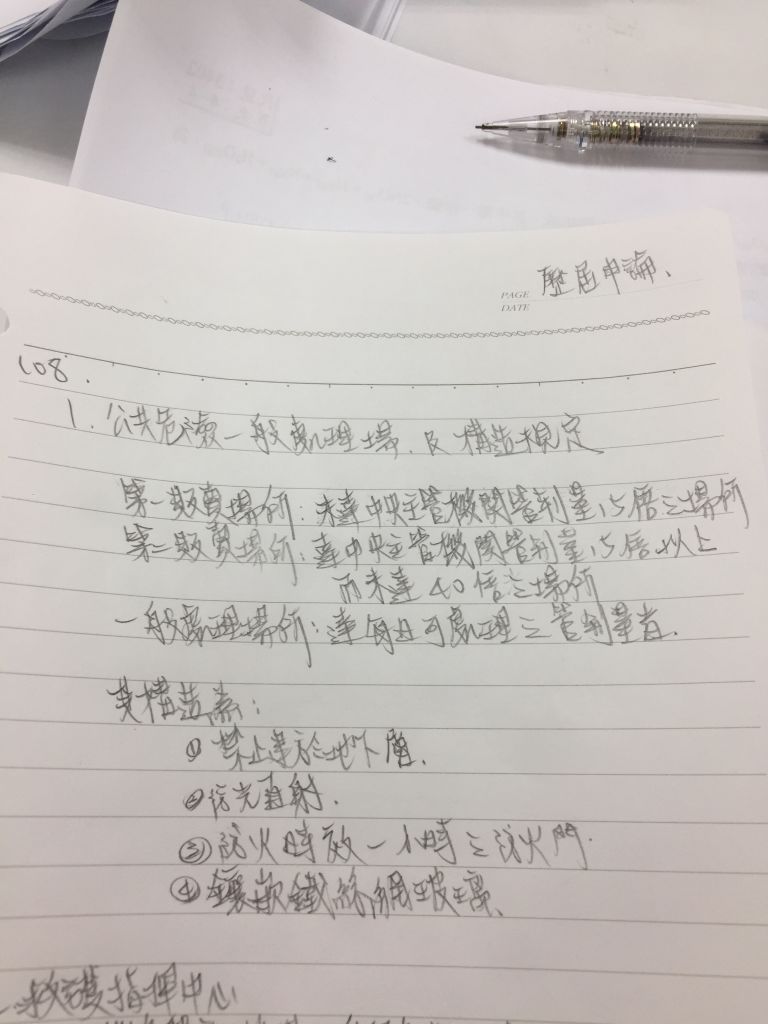 PAGE 歷屆申論、
DATE
108.
1. 公共危險一般處理場、及構造規定
第一販賣場所：未達中央主管機關管制量15倍之場所
第二販賣場所：達中央主管機關管制量15倍以上
而未達40倍之場所
一般處理場所：達每日可處理之管制量者.
其構造為：
① 禁止建於地下層.
② 直射.
③ 防火時效一小時之防火門.
④ 鑲嵌鐵絲網玻璃、
救護指揮中心